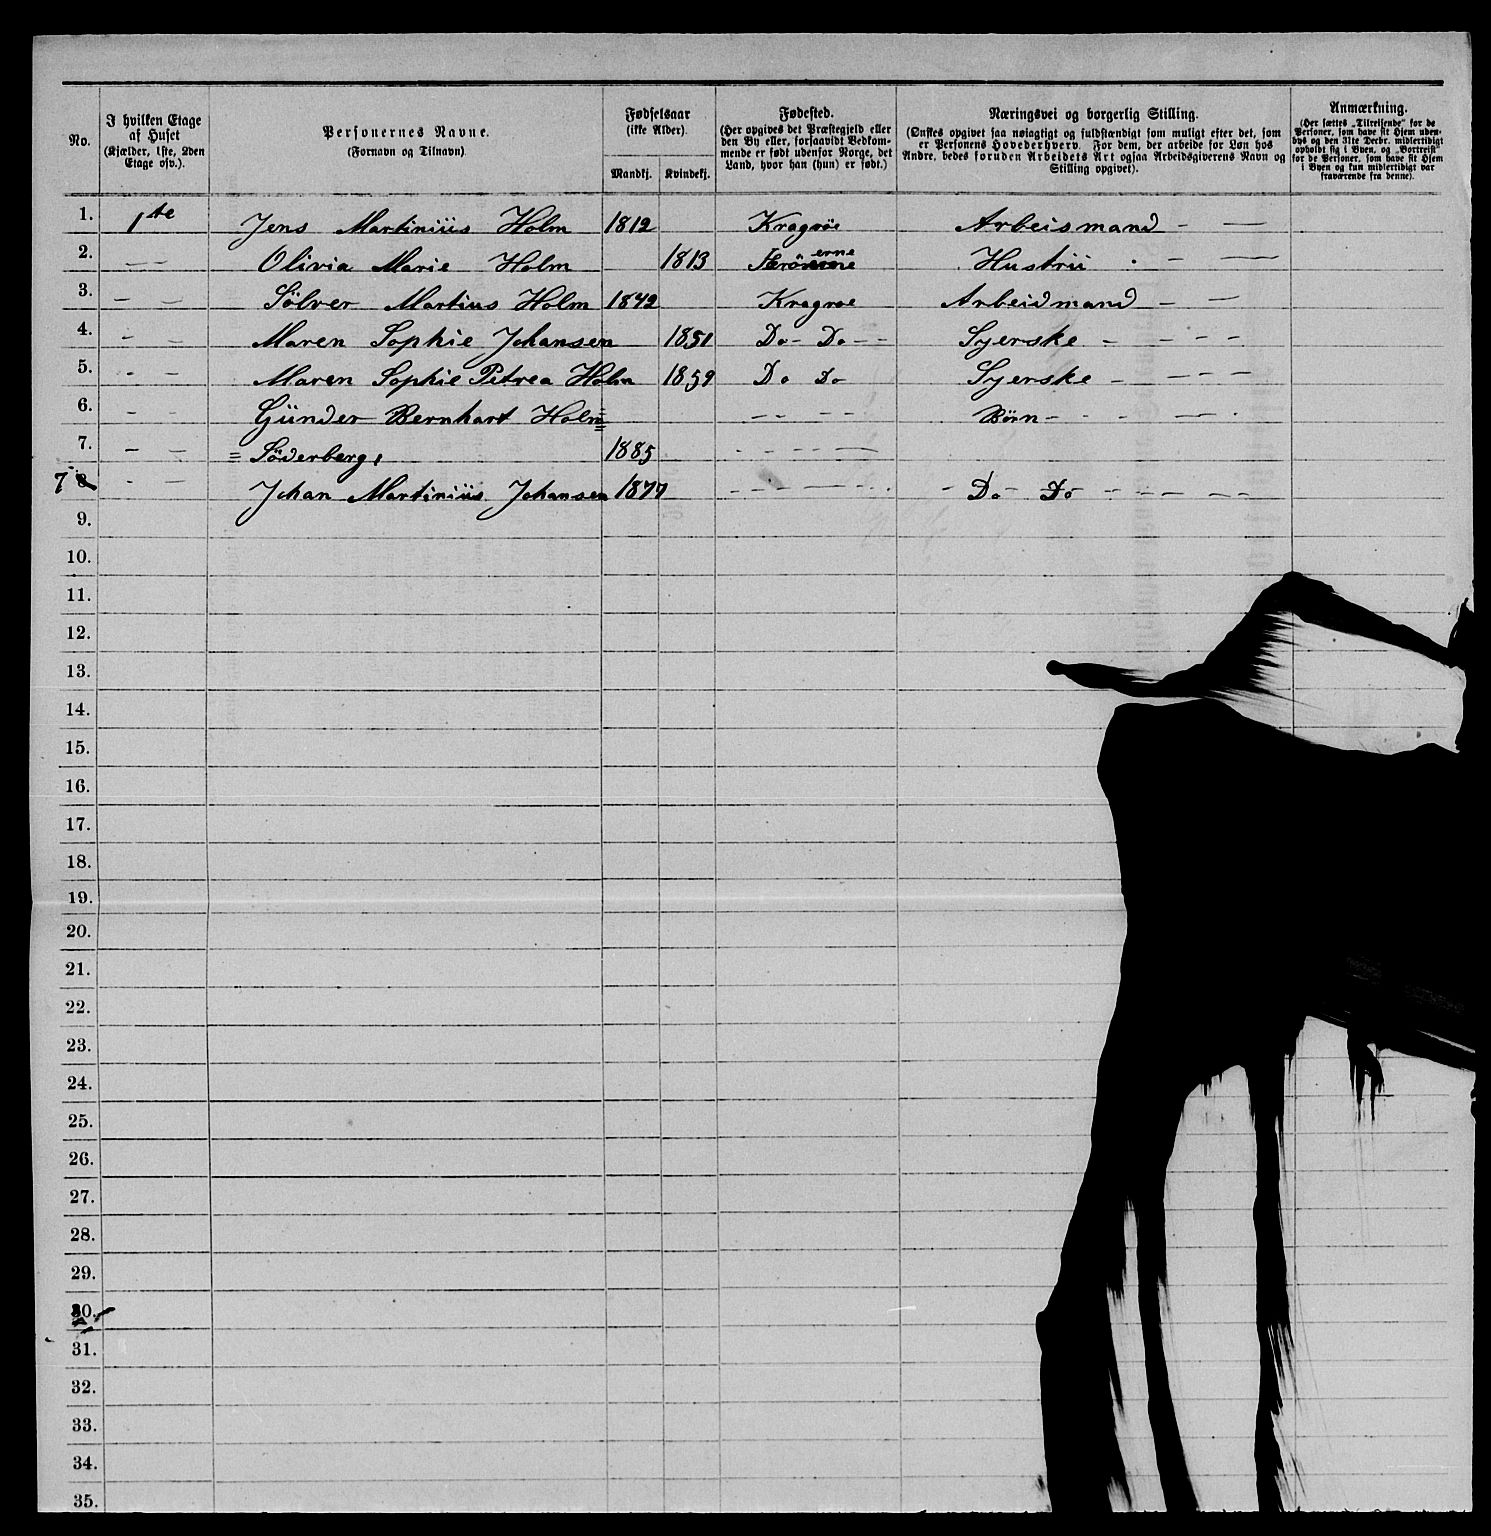 No.
I hvilken Etage
af Huset
(Kjælder, 1ste, 2den
Etage osv.).
Personernes Navne.
(Fornavn og Tilnavn)
Fødselsaar
(ikke Alder).
Mandkj. Kvindekj.
Fødested.
(Her opgives det Præstegjeld eller
den By eller, forsaavidt Vedkom-
mende er født udenfor Norge, det
Land, hvor han (hun) er født.)
Næringsvei og borgerlig Stilling.
(Ønskes opgivet saa nøiagtigt og fuldstændigt som muligt efter det, som
er Personens Hovederhverv. For dem, der arbeide for Løn hos
Andre, bedes foruden Arbeidets Art ogsaa Arbeidsgiverens Navn og
Stilling opgivet).
Anmærkning.
(Her sættes „Tilreisende“ for de
Personer, som have sit Hjem uden-
bys og den 31te Decbr. midlertidigt
opholdt sig i Byen, og „Bortreist“
for de Personer, som have sit Hjem
i Byen og kun midlertidigt var
fraværende fra denne).
1. 1te Jens Martinius Holm 1812 Kragrøe Arbeismand - —
2. — — Olivia Marie Holm 1813 erne Hustru - —
3. — — Sölver Martius Holm 1842 Kragrøe Arbeidmand - —
4. - — Maren Sophie Johansen 1851 Do - Do - - Syerske - — - -
5. - — Maren Sophie Petrea Holm 1859 Do Do Syerske - — - -
6. - — Günder Bernhart Holm= — - — Børn - - - — -
7. - — = Söderberg, 1885 - - — - —
7 8 - — Johan Martinius Johansen 1877 - - — - — - - Do - Do - - — — —
9.
10.
11.
12.
13.
14.
15.
16.
17.
18.
19.
20.
21.
22.
23.
24.
25.
26.
27.
28.
29.
30.
31.
32.
33.
34.
35.